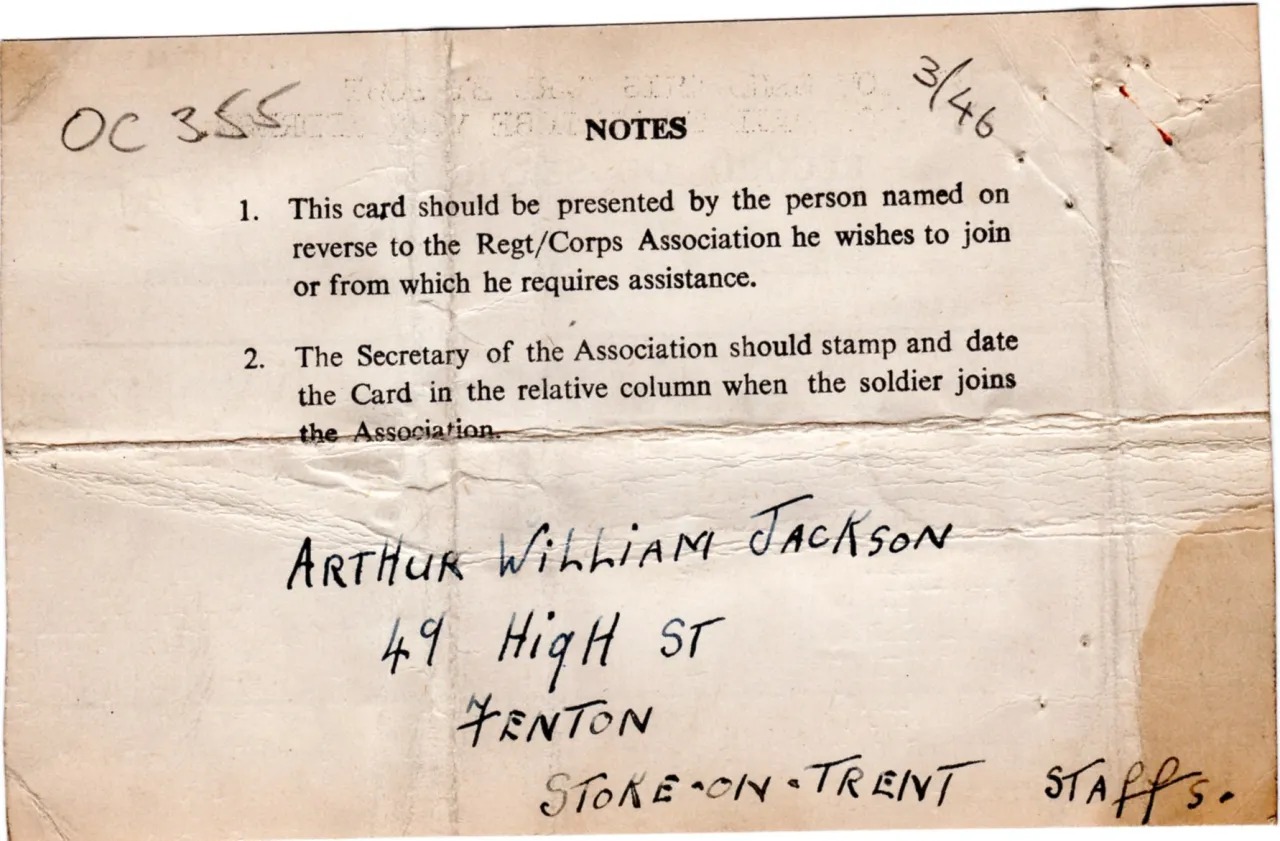 OC 355
3/46
NOTES
1. This card should be presented by the person named on
reverse to the Regt/Corps Association he wishes to join
or from which he requires assistance.
2. The Secretary of the Association should stamp and date
the Card in the relative column when the soldier joins
the Association.
ARTHUR WiLLiAM JACKSON
49 HigH ST
FENTON
STOKE-ON-TRENT STAffs.